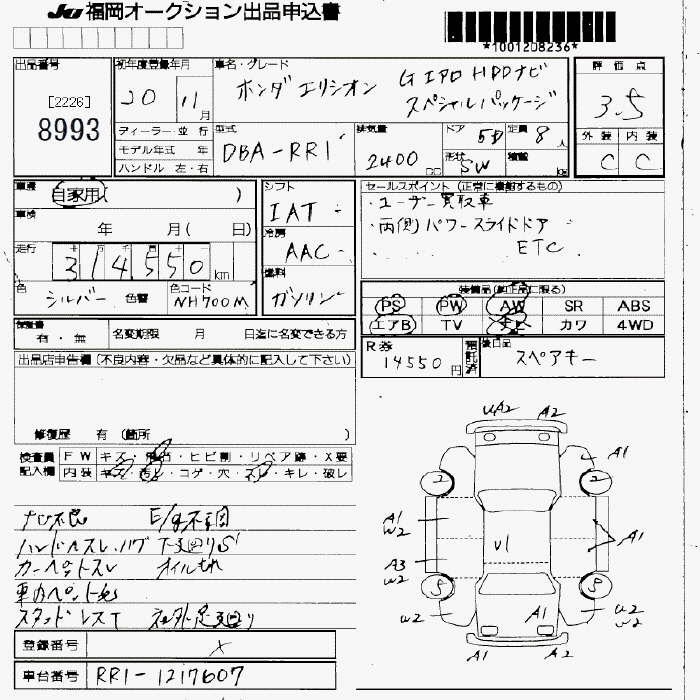 JU 福岡オークション出品申込書
*1001208236*
出品番号
[2226]
8993
初年度登録年月
20 11月
車名・グレード
ホンダ エリシオン G エアロ HDDナビ
スペシャルパッケージ
評価点
3.5
外装 内装
C C
ディーラー・並行
モデル年式 年
ハンドル 左・右
型式
DBA-RR1
排気量
2400 CC
ドア
5D
定員
8人
形状
SW
積載
車歴
自家用( )
車検
年 月( 日)
走行
314,550 km
色
シルバー 色替
色コード
NH700M
シフト
IAT
冷房
AAC
燃料
ガソリン
セールスポイント (正常に機能するもの)
・ユーザー買取車
・両側パワースライドドア
ETC
装備品(純正品に限る)
PS PW AW SR ABS
エアB TV カワ 4WD
検査書
有・無 名変期限 月 日迄に名変できる方
R券
14550円
預託済
後日品
スペアキー
出品店申告欄(不良内容・欠品など具体的に記入して下さい)
修復歴 有 (箇所 )
検査員記入欄
FW キズ・飛石・ヒビ割・リペア跡・X要
内装 キズ・汚レ・コゲ・穴・スレ・キレ・破レ
ナビ不良 E/g不調
ハンドルスレ、ハゲ 下廻りS
カーペットスレ オイルもれ
車内ペット
スタッドレスT 社外足廻り
登録番号
車台番号 RR1-1217607
UA2 A2
A1
2 2
A1
W2
V1
A1
A3
W2
S S
U2
A1
U2
W2
A1 A2